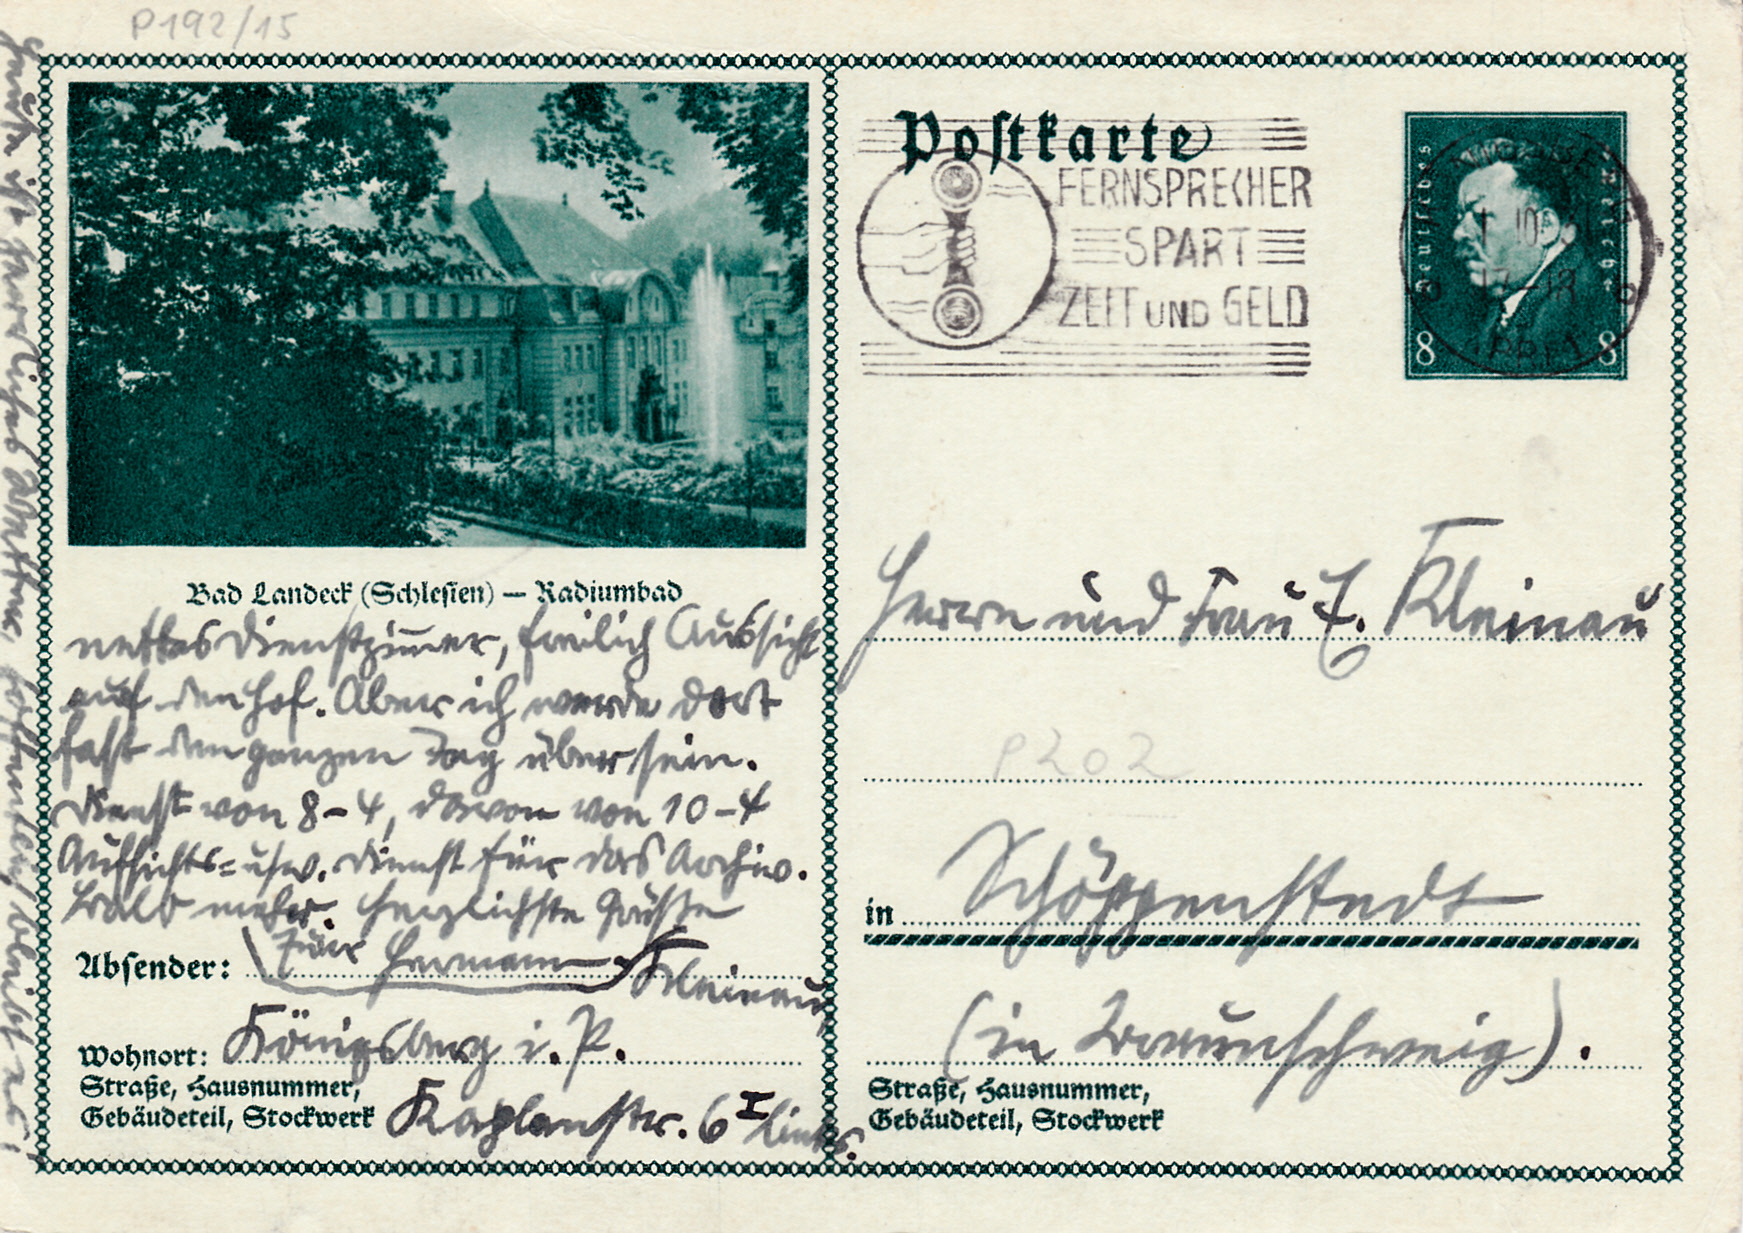 P192/15
Bad Landeck (Schlesien) — Radiumbad
nettes Dienstzimmer, freilich Aussicht
auf den Hof. Aber ich werde dort
fast den ganzen Tag über sein.
Dienst von 8-4, davon von 10-4
Aufsichts= usw. Dienst für das Archiv.
Bald mehr. Herzlichste Grüße
Absender: Euer Hermann Kleinau,
Wohnort: Königsberg i. P.
Straße, Hausnummer,
Gebäudeteil, Stockwerk Kaplanstr. 6 I links.
Postkarte
FERNSPRECHER
SPART
ZEIT UND GELD
Deutsches Reich
8 8
Herrn und Frau E. Kleinau
P202
in Schöppenstedt
(in Braunschweig).
Straße, Hausnummer,
Gebäudeteil, Stockwerk